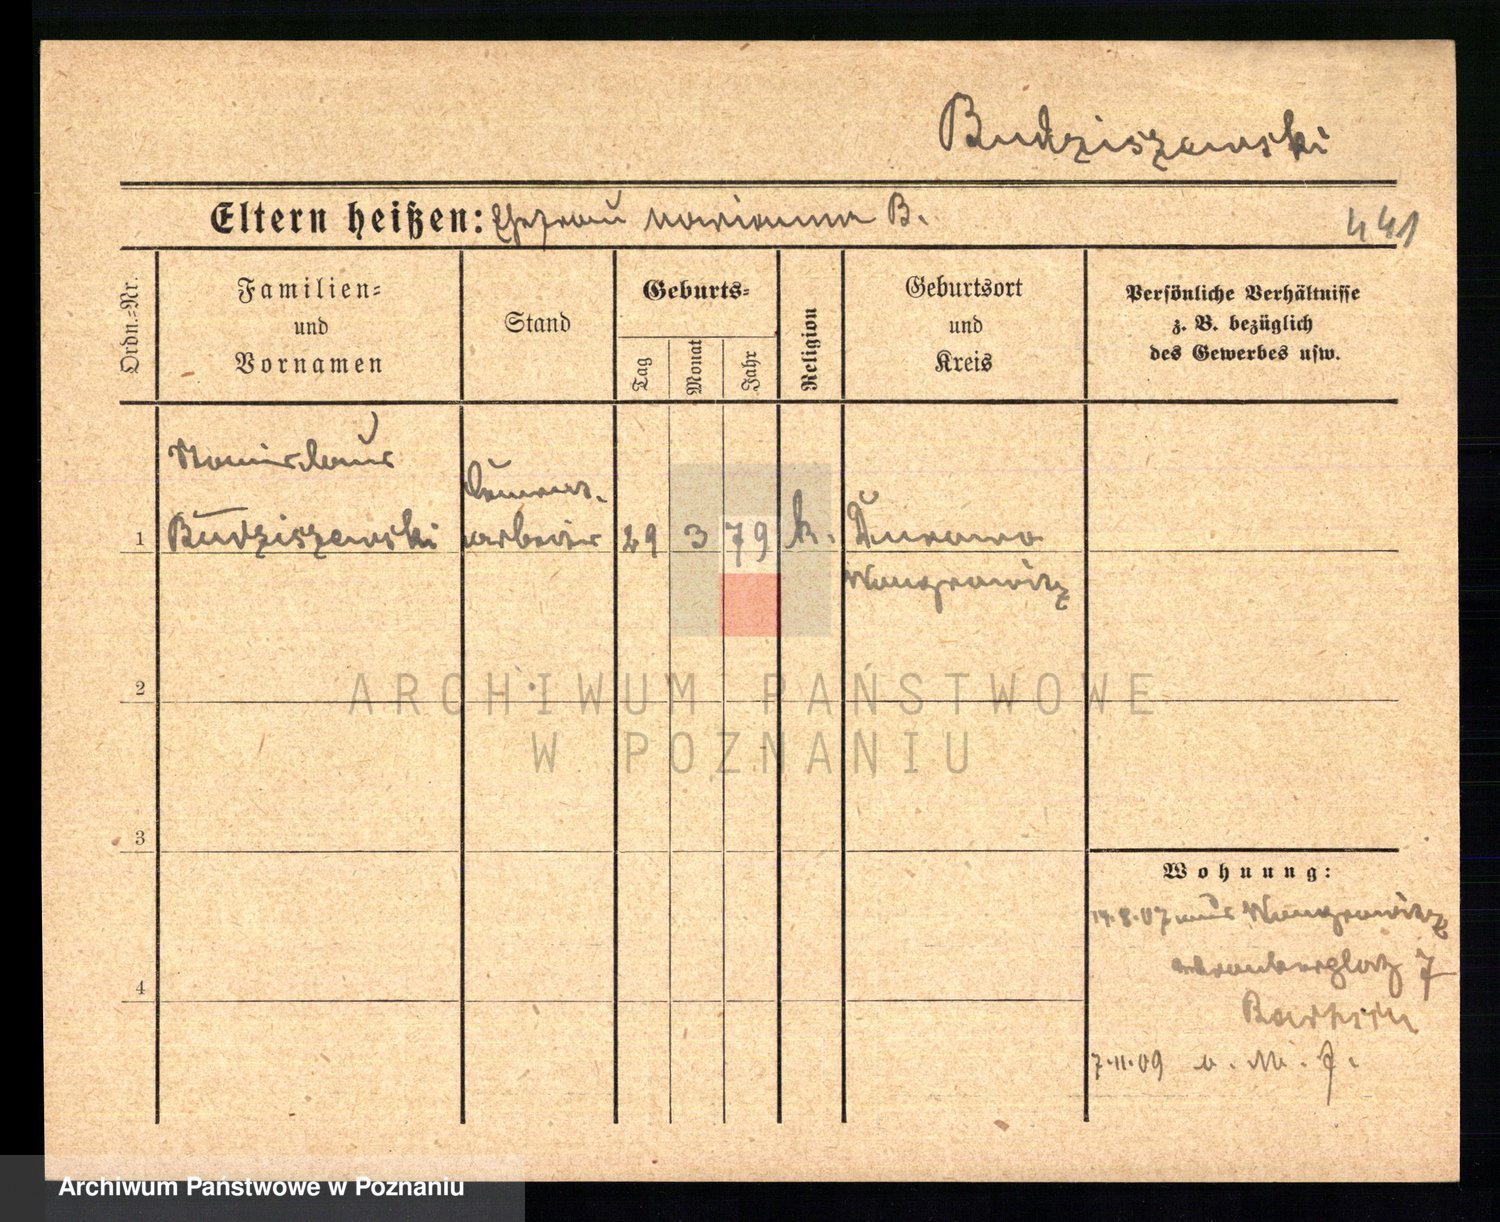 Budziszewski
Eltern heißen: Ehefrau Marianna B.
441
Ordn.=Nr.
Familien=
und
Vornamen
Stand
Geburts=
Tag
Monat
Jahr
Religion
Geburtsort
und
Kreis
Persönliche Verhältnisse
z. B. bezüglich
des Gewerbes usw.
Stanislaus
Budziszewski
arbeiter
1
29 3 79 k. Durowo
Wongrowitz
2
3
4
Wohnung:
14.8.07 aus Wongrowitz
7
7.11.09
ARCHIWUM PAŃSTWOWE
W POZNANIU
Archiwum Państwowe w Poznaniu